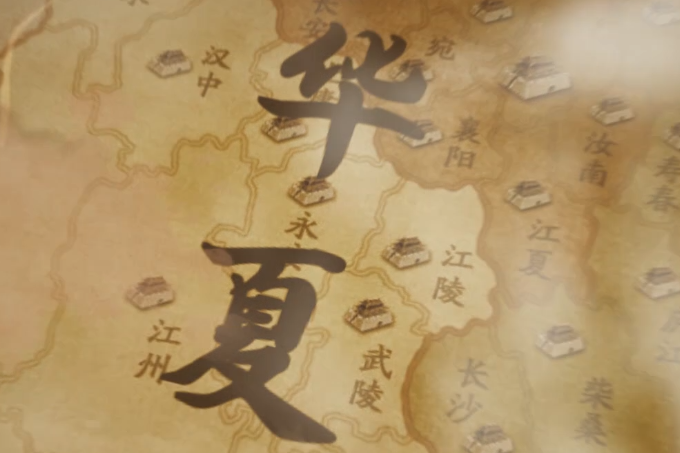 华夏
长安
宛
汉中
襄阳
汝南
寿春
永
江夏
江陵
江州
武陵
庐江
长沙
柴桑